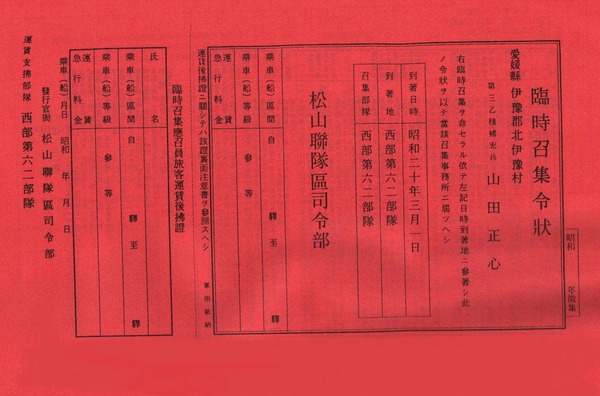 昭和 年徴集
臨時召集令状
愛媛縣 伊豫郡北伊豫村
第三乙種補充兵 山田正心
右臨時召集ヲ命セラル依テ左記日時到著地ニ參著シ此
ノ令狀ヲ以テ當該召集事務所ニ届出ツヘシ
到著日時 昭和二十年三月一日
到著地 西部第六二部隊
召集部隊 西部第六二部隊
松山聯隊區司令部
乘車(船)區間 自 驛至 驛
乘車(船)等級 參等
運賃
急行料金
運賃後拂證ニ關シテハ該證裏面注意書ヲ參照スヘシ
軍用
臨時召集應召員旅客運賃後拂證
氏名
乘車(船)區間 自 驛至 驛
乘車(船)等級 參等
運賃
急行料金
乘車(船)月日 昭和 年 月 日
發行官衙 松山聯隊區司令部
運賃支拂部隊 西部第六二部隊